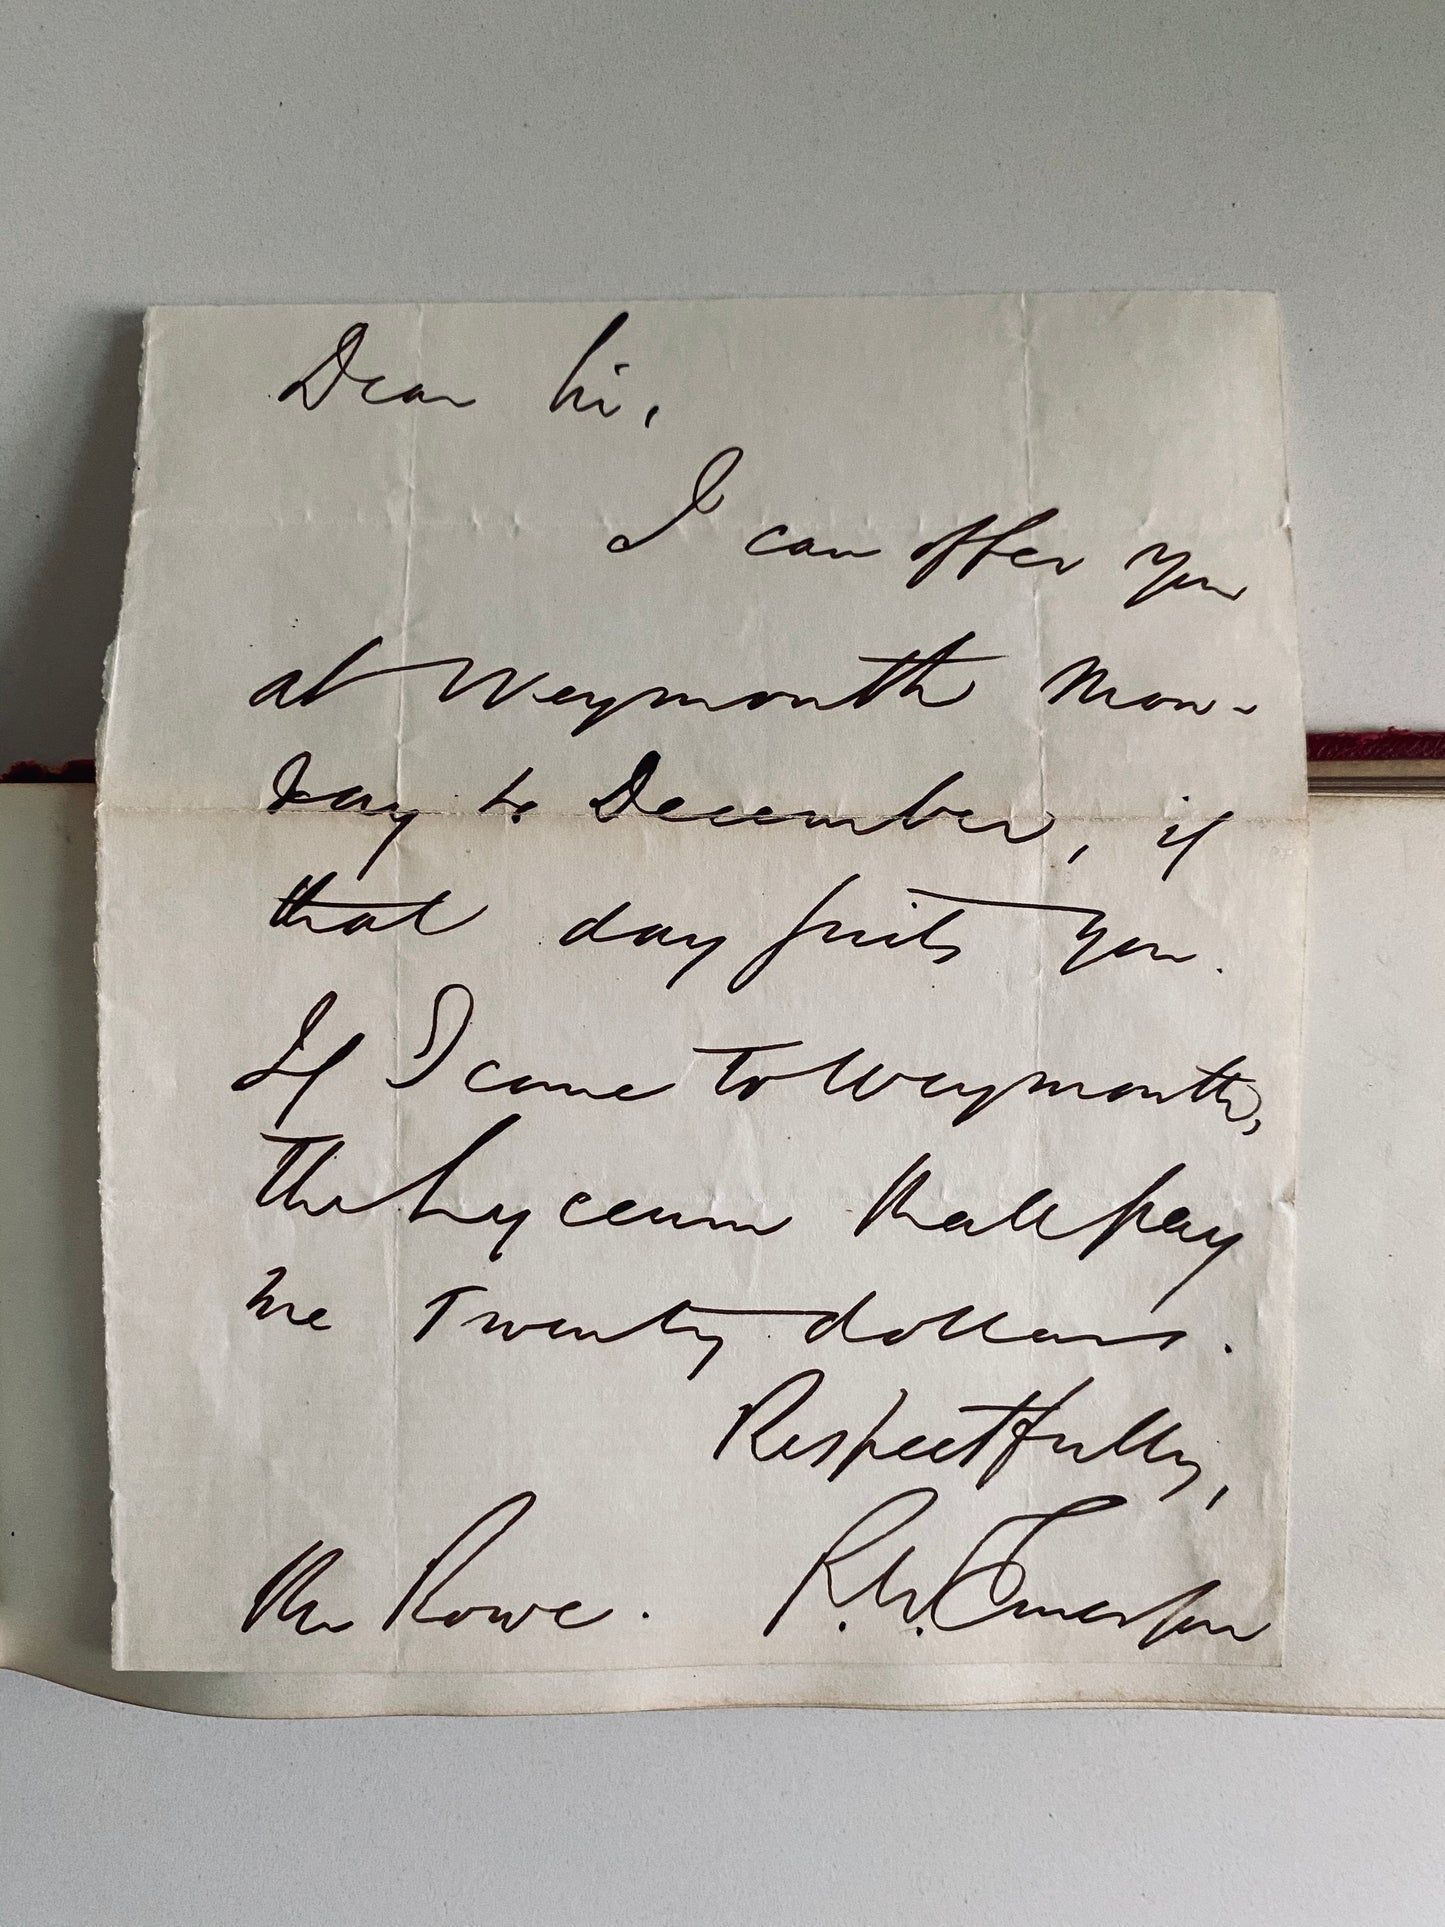 Dear Sir,
I can offer you
at Weymouth Mon-
day December, if
that day suits you.
If I come to Weymouth,
the Lyceum shall pay
me Twenty dollars.
Respectfully,
Mr Rowe. R. W. Emerson